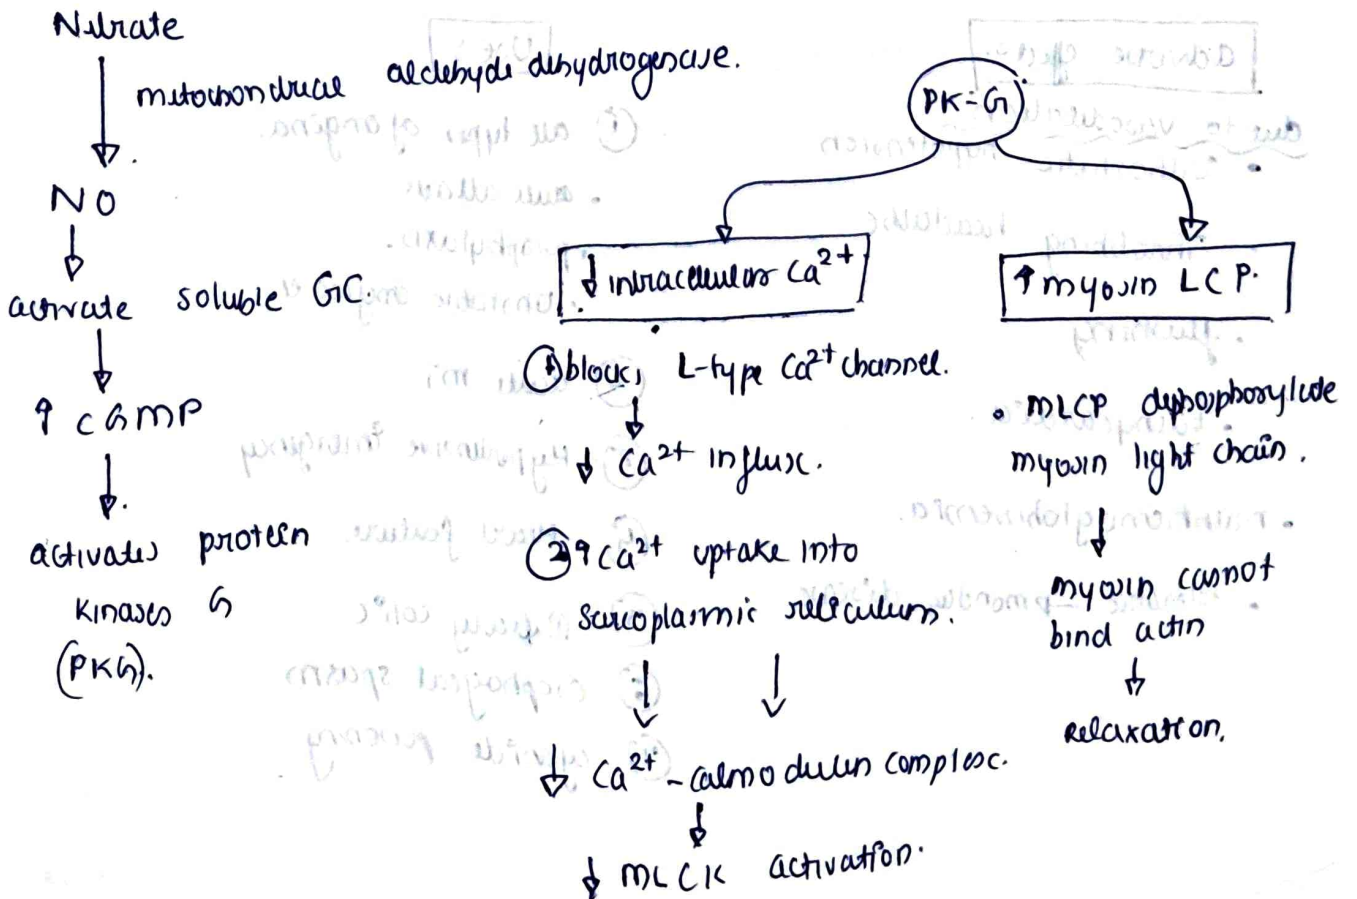 Nitrate
↓ mitochondrial aldehyde dehydrogenase.
NO
↓
activate soluble GC
↓
↑ cGMP
↓
activates protein
kinases G
(PKG).
PK-G
↓ intracellular Ca²⁺
① blocks L-type Ca²⁺ channel.
↓
↓ Ca²⁺ influx.
② ↑ Ca²⁺ uptake into
sarcoplasmic reticulum.
↓ ↓
↓ Ca²⁺-calmodulin complex.
↓
↓ MLCK activation.
↑ myosin LCP.
• MLCP dephosphorylate
myosin light chain.
↓
myosin cannot
bind actin
↓
Relaxation.